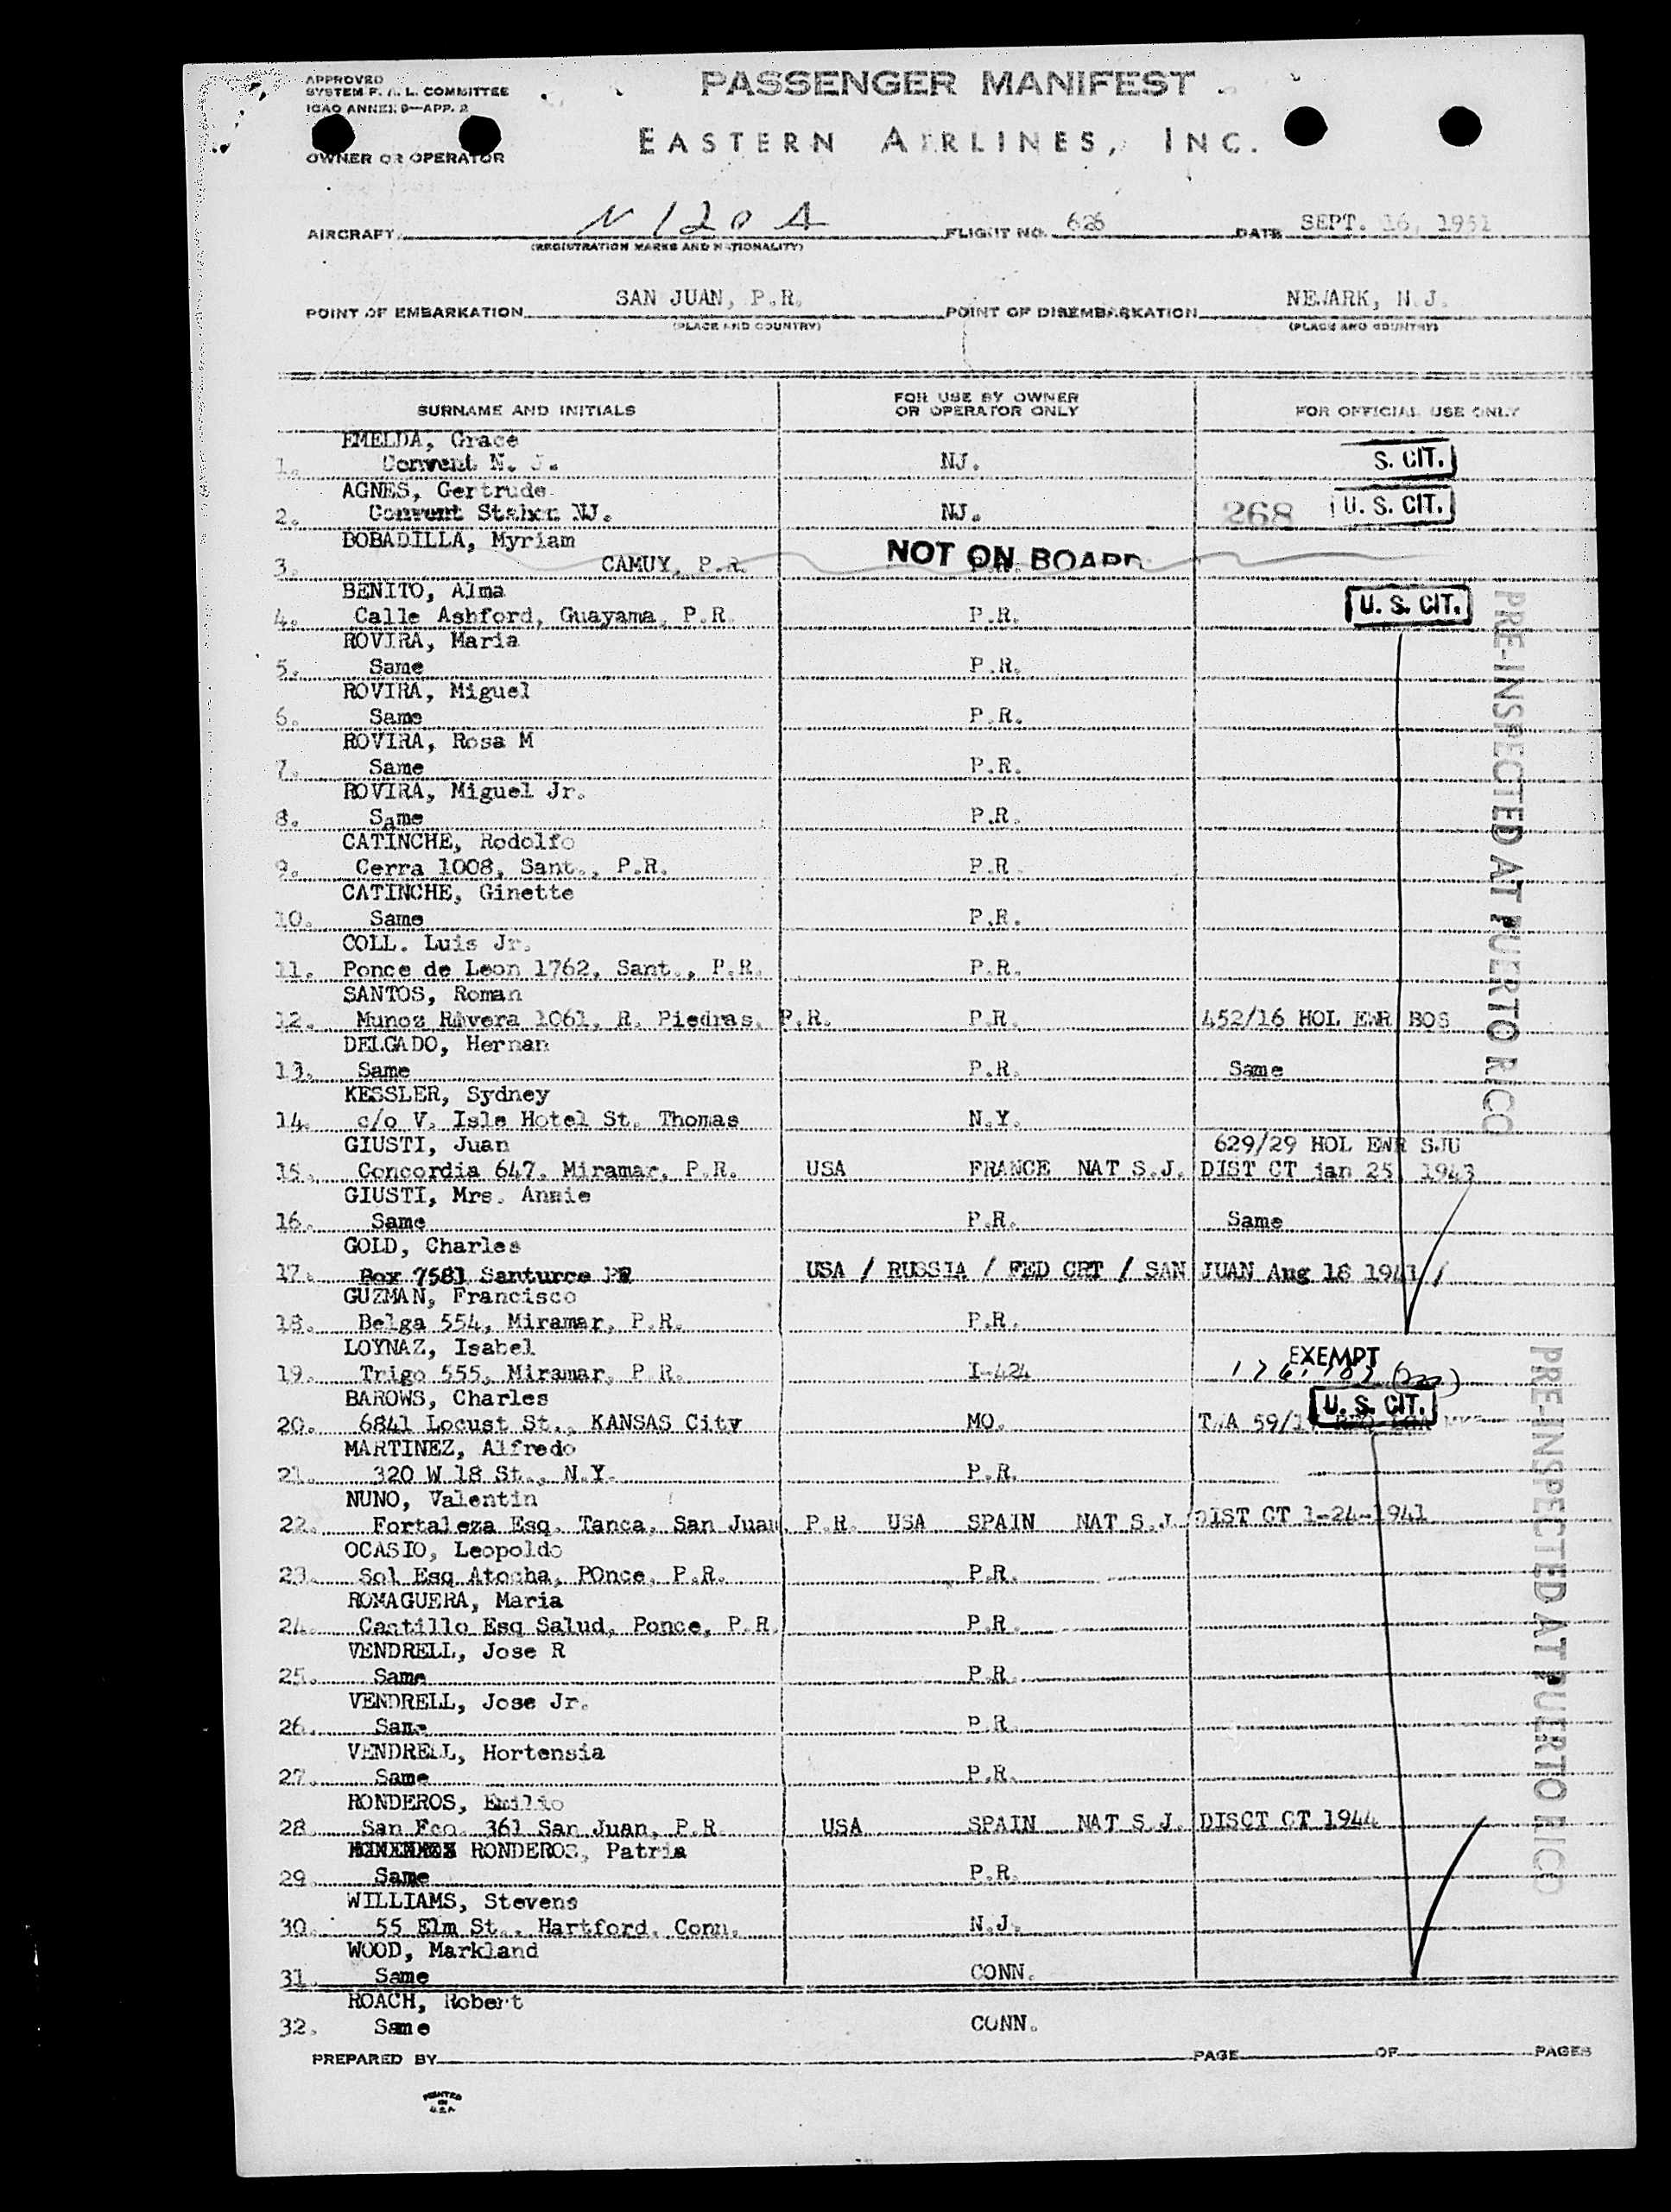 APPROVED
SYSTEM F. A. L. COMMITTEE
ICAO ANNEX 9—APP. 2
PASSENGER MANIFEST
EASTERN AIRLINES, INC.
OWNER OR OPERATOR
AIRCRAFT N120A FLIGHT NO. 626 DATE SEPT. 16, 1951
(REGISTRATION MARKS AND NATIONALITY)
POINT OF EMBARKATION SAN JUAN, P.R. POINT OF DISEMBARKATION NEWARK, N.J.
(PLACE AND COUNTRY) (PLACE AND COUNTRY)
SURNAME AND INITIALS FOR USE BY OWNER OR OPERATOR ONLY FOR OFFICIAL USE ONLY
EMELDA, Grace
1. Convent N. J. NJ. S. CIT.
AGNES, Gertrude
2. Convent NJ. NJ. 268 U. S. CIT.
BOBADILLA, Myriam
3. CAMUY, P.R. NOT ON BOARD
BENITO, Alma
4. Calle Ashford, Guayama, P.R. P.R. U. S. CIT.
ROVIRA, Maria
5. Same P.R.
ROVIRA, Miguel
6. Same P.R.
ROVIRA, Rosa M
7. Same P.R.
ROVIRA, Miguel Jr.
8. Same P.R.
CATINCHE, Rodolfo
9. Cerra 1008, Sant., P.R. P.R.
CATINCHE, Ginette
10. Same P.R.
COLL. Luis Jr.
11. Ponce de Leon 1762, Sant., P.R. P.R.
SANTOS, Roman
12. Munoz Rivera 1061, R. Piedras, P.R. P.R. 452/16 HOL EWR BOS
DELGADO, Hernan
13. Same P.R. Same
KESSLER, Sydney
14. c/o V. Isle Hotel St. Thomas N.Y.
GIUSTI, Juan 629/29 HOL EWR SJU
15. Concordia 647, Miramar, P.R. USA FRANCE NAT S.J. DIST CT jan 25, 1943
GIUSTI, Mrs. Annie
16. Same P.R. Same
GOLD, Charles
17. Box 7581 Santurce PR USA / RUSSIA / FED CRT / SAN JUAN Aug 18 1941 /
GUZMAN, Francisco
18. Belga 554, Miramar, P.R. P.R.
LOYNAZ, Isabel EXEMPT
19. Trigo 555, Miramar, P.R. I-424
BAROWS, Charles U. S. CIT.
20. 6841 Locust St., KANSAS City MO. TWA
MARTINEZ, Alfredo
21. 320 W 18 St., N.Y. P.R.
NUNO, Valentin
22. Fortaleza Esq. Tanca, San Juan, P.R. USA SPAIN NAT S.J. DIST CT 1-24-1941
OCASIO, Leopoldo
23. Sol Esq Atocha, POnce, P.R. P.R.
ROMAGUERA, Maria
24. Castillo Esq Salud, Ponce, P.R. P.R.
VENDRELL, Jose R
25. Same P.R.
VENDRELL, Jose Jr.
26. Same P.R.
VENDRELL, Hortensia
27. Same P.R.
RONDEROS, Emilio
28. San Fco. 361 San Juan, P.R. USA SPAIN NAT S.J. DISCT CT 1944
RONDEROS, Patria
29. Same P.R.
WILLIAMS, Stevens
30. 55 Elm St., Hartford, Conn. N.J.
WOOD, Markland
31. Same CONN.
ROACH, Robert
32. Same CONN.
PREPARED BY PAGE OF PAGES
PRINTED
IN
U.S.A.
PRE-INSPECTED AT PUERTO RICO
PRE-INSPECTED AT PUERTO RICO